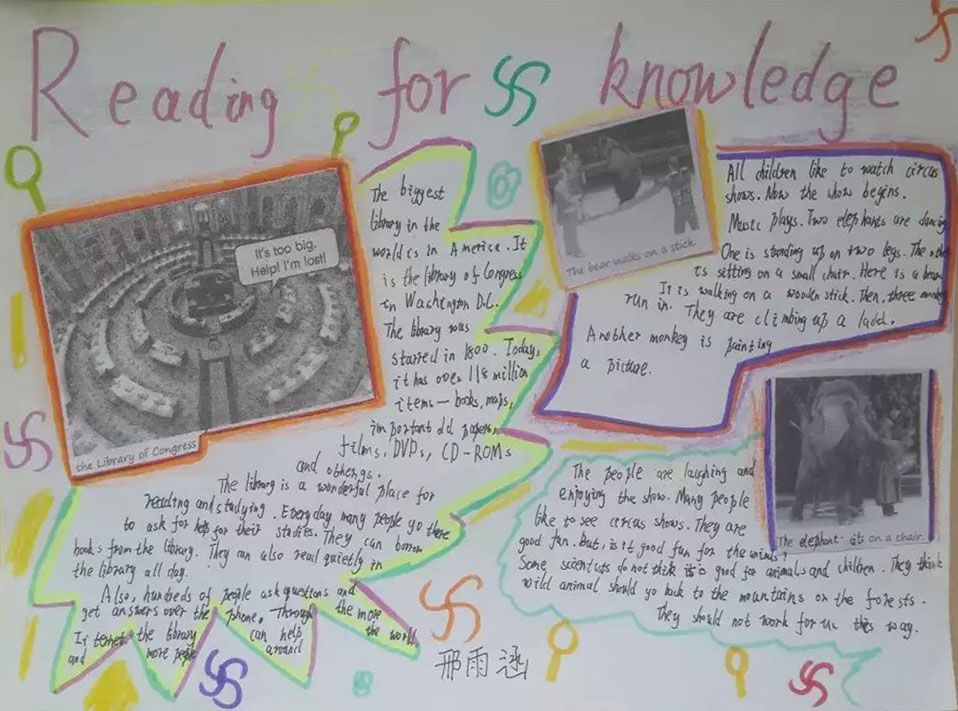 Reading for knowledge
It's too big.
Help! I'm lost!
the Library of Congress
The biggest
library in the
world is in America. It
is the library of Congress
in Wachington D.C.
The library was
started in 1800. Today,
it has over 118 million
items — books, maps,
important old papers,
films, DVDs, CD-ROMs
and
The library is a wonderful place for
reading and studying. Everyday many people go there
to ask for help for their studies. They can borrow
books from the library. They can also read quietly in
the library all day.
Also, hundreds of people ask questions and
get answers over the phone. Through
the library can help the more
and more people around the world.
The bear walks on a stick.
All children like to watch circus
shows. Now the show begins.
Music plays. Two elephants are dancing
One is standing up on two legs. The
is sitting on a small chair. Here is a
It is walking on a wooden stick. Then, three
run in. They are climbing up a
Another monkey is painting
a picture.
The elephant sits on a chair.
The people are laughing and
enjoying the show. Many people
like to see circus shows. They are
good fun. but, is it good fun for the
Some do not think it's good for animals and children. They think
wild animal should go back to the mountains or the forests.
They should not work for us this way.
邢雨涵